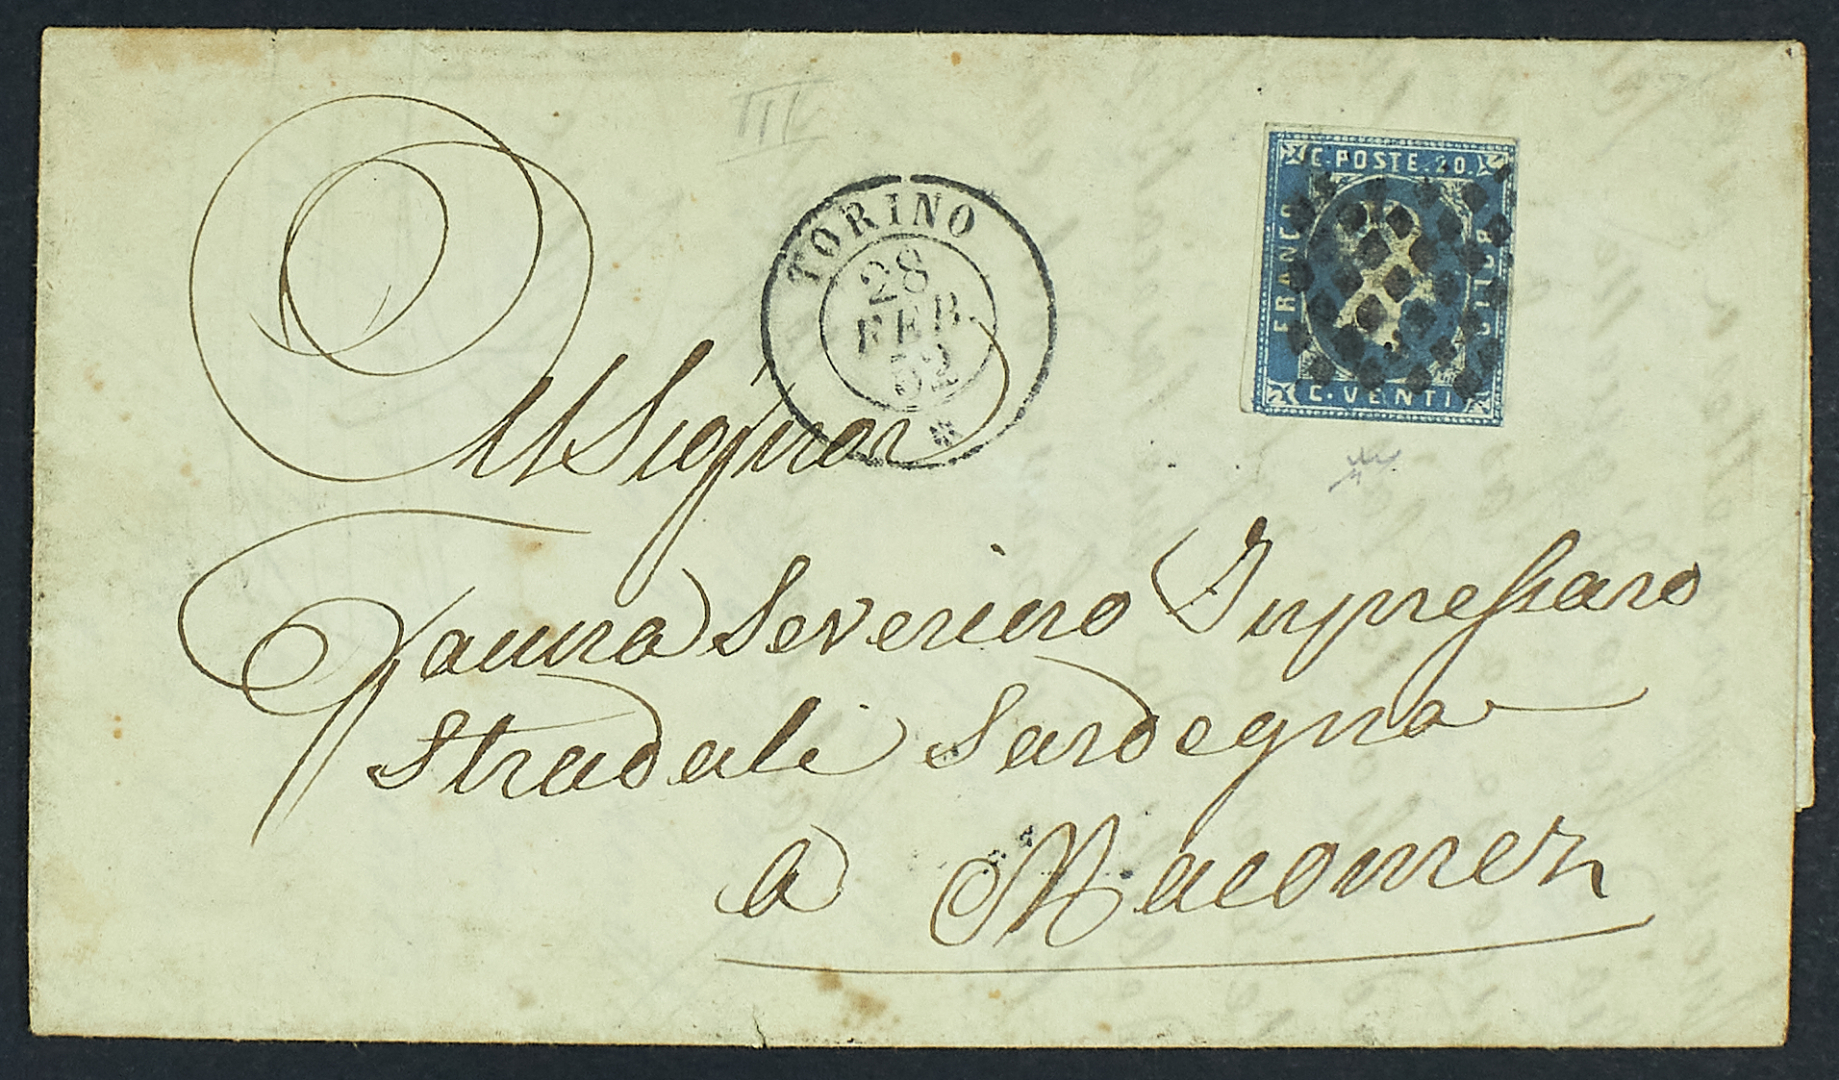 III
TORINO
28
FEB.
52
C. POSTE. 20.
FRANCO
BOLLO
C. VENTI
Al Signor
Severino Impressaro
Stradali Sardegna
a Macomer